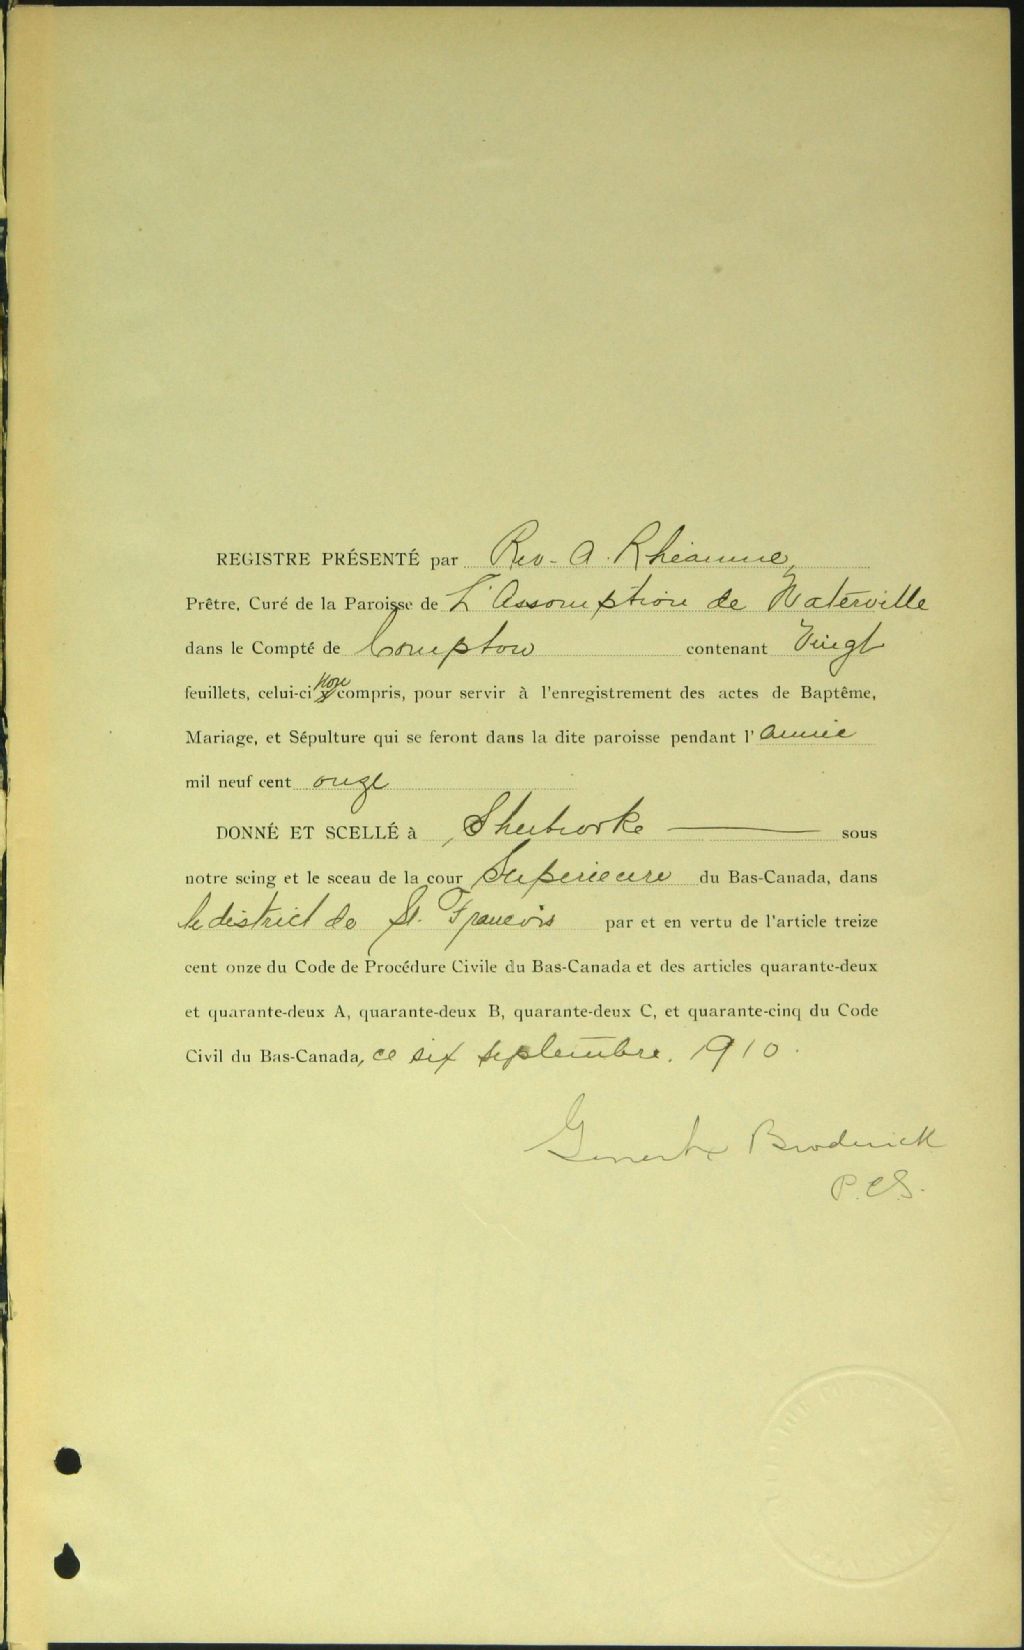 REGISTRE PRÉSENTÉ par Rev. A. Rhéaume,
Prêtre, Curé de la Paroisse de L'Assomption de Waterville
dans le Compté de Compton contenant Vingt
feuillets, celui-ci non compris, pour servir à l'enregistrement des actes de Baptême,
Mariage, et Sépulture qui se feront dans la dite paroisse pendant l'année
mil neuf cent onze
DONNÉ ET SCELLÉ à Sherbrooke sous
notre seing et le sceau de la cour Superieure du Bas-Canada, dans
le district de St. Francois par et en vertu de l'article treize
cent onze du Code de Procédure Civile du Bas-Canada et des articles quarante-deux
et quarante-deux A, quarante-deux B, quarante-deux C, et quarante-cinq du Code
Civil du Bas-Canada, ce six septembre. 1910.
Broderick
P.C.S.